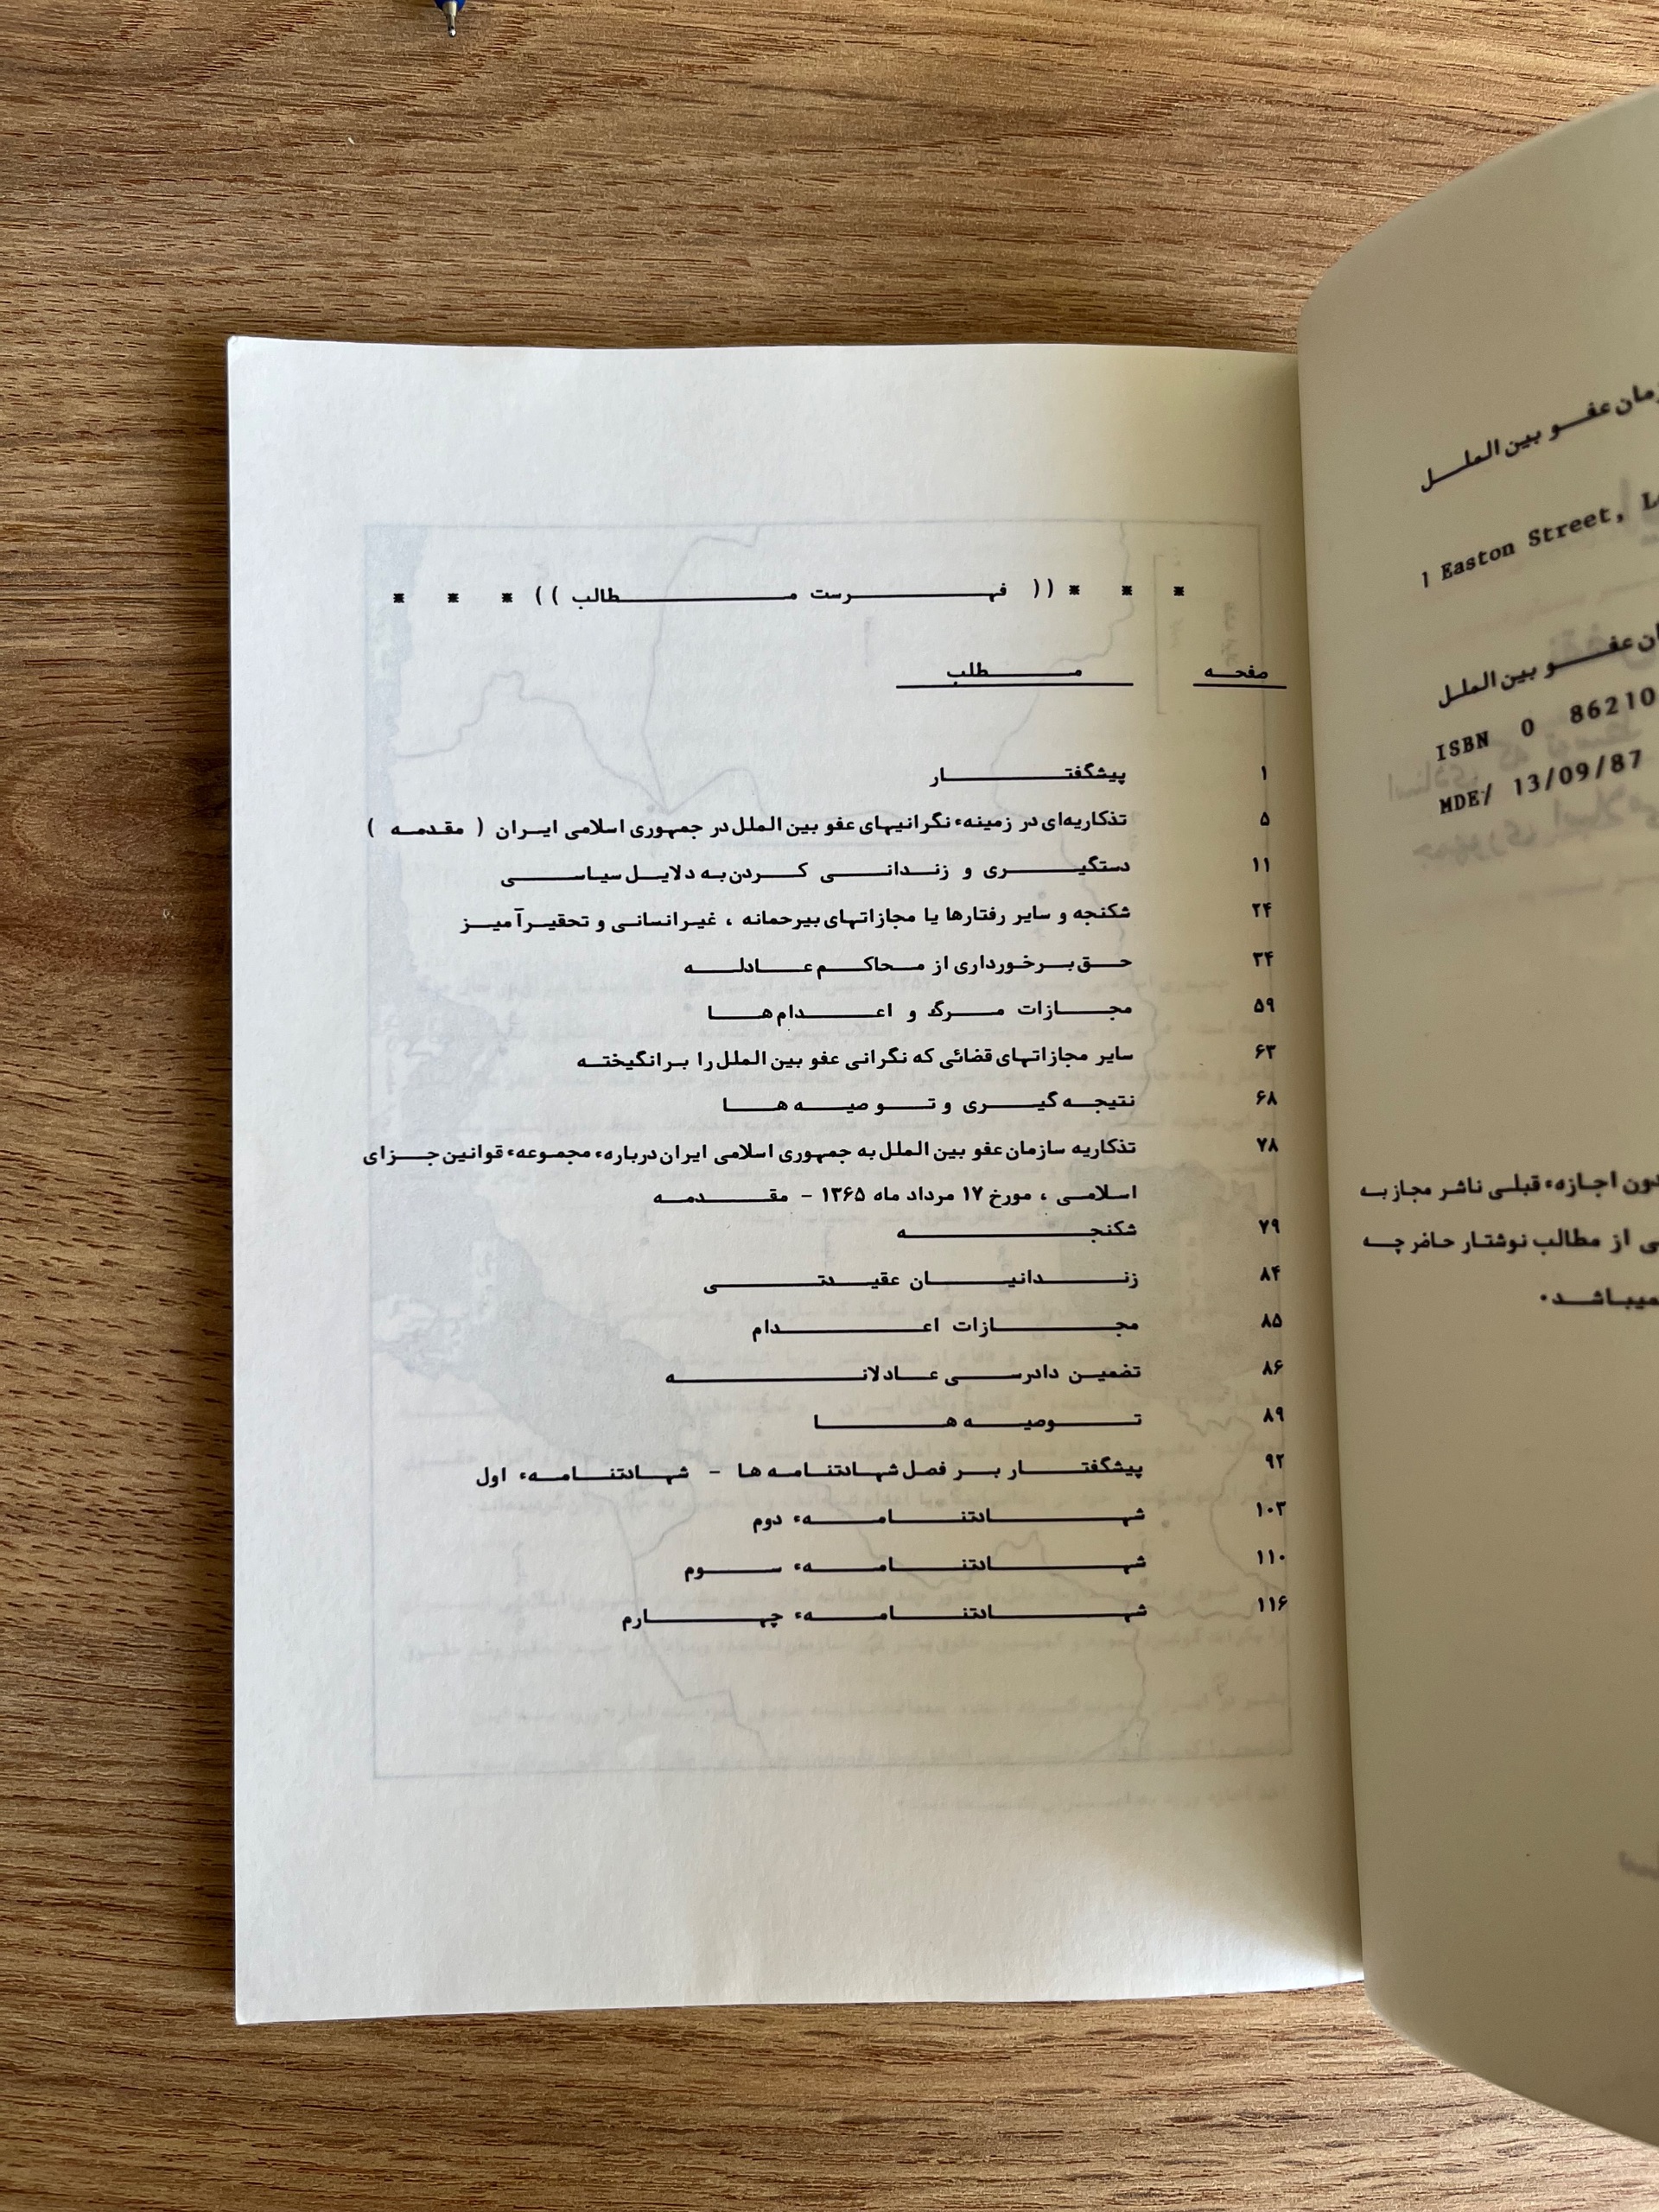 * * * (( فهرست مطالب )) * * *
صفحه مطلب
۱ پیشگفتار
۵ تذکاریه‌ای در زمینهء نگرانیهای عفو بین الملل در جمهوری اسلامی ایران ( مقدمه )
۱۱ دستگیری و زندانی کردن به دلایل سیاسی
۲۴ شکنجه و سایر رفتارها یا مجازاتهای بیرحمانه ، غیرانسانی و تحقیرآمیز
۳۴ حق برخورداری از محاکم عادله
۵۹ مجازات مرگ و اعدام ها
۶۳ سایر مجازاتهای قضائی که نگرانی عفو بین الملل را برانگیخته
۶۸ نتیجه گیری و توصیه ها
۷۸ تذکاریه سازمان عفو بین الملل به جمهوری اسلامی ایران دربارهء مجموعهء قوانین جزای
اسلامی ، مورخ ۱۷ مرداد ماه ۱۳۶۵ – مقدمه
۷۹ شکنجه
۸۴ زندانیان عقیدتی
۸۵ مجازات اعدام
۸۶ تضمین دادرسی عادلانه
۸۹ توصیه ها
۹۲ پیشگفتار بر فصل شهادتنامه ها – شهادتنامهء اول
۱۰۳ شهادتنامهء دوم
۱۱۰ شهادتنامهء سوم
۱۱۶ شهادتنامهء چهارم
عفو بین الملل
1 Easton Street,
عفو بین الملل
ISBN 0 86210
MDE/ 13/09/87
اجازهء قبلی ناشر مجاز به
از مطالب نوشتار حاضر چه
میباشد.